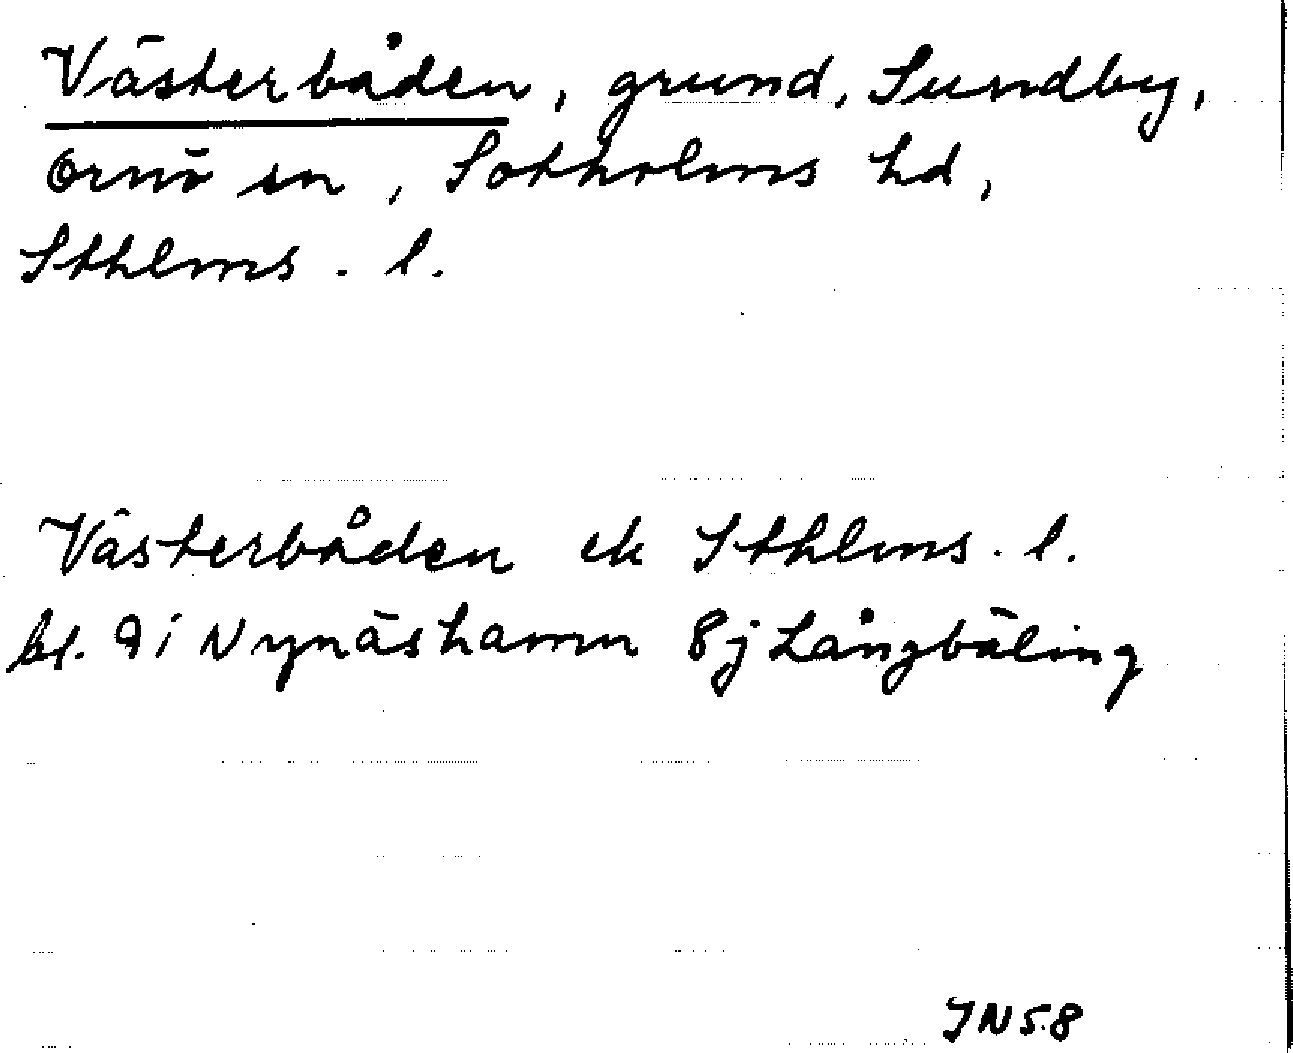 Västerbåden, grund, Sundby,
Ornö sn, Sotholms hd,
Sthlms. l.
Västerbåden ek Sthlms. l.
bl. 9i Nynäshamn 8j Långbäling
JN58